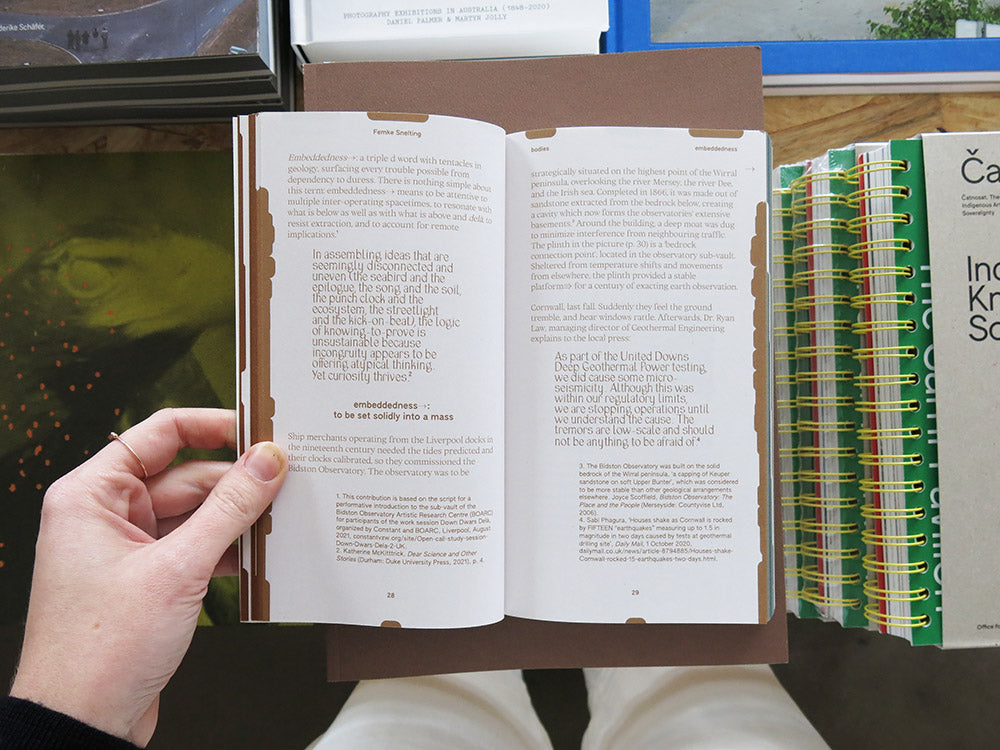 derike Schäfer,
PHOTOGRAPHY EXHIBITIONS IN AUSTRALIA (1848-2020)
DANIEL PALMER & MARTYN JOLLY
Femke Snelting
Embeddedness→: a triple d word with tentacles in
geology, surfacing every trouble possible from
dependency to duress. There is nothing simple about
this term: embeddedness→ means to be attentive to
multiple inter-operating spacetimes, to resonate with
what is below as well as with what is above and delà, to
resist extraction, and to account for remote
implications.¹
In assembling ideas that are
seemingly disconnected and
uneven (the seabird and the
epilogue, the song and the soil,
the punch clock and the
ecosystem, the streetlight
and the kick-on-beat), the logic
of knowing-to-prove is
unsustainable because
incongruity appears to be
offering atypical thinking.
Yet curiosity thrives.²
embeddedness→:
to be set solidly into a mass
Ship merchants operating from the Liverpool docks in
the nineteenth century needed the tides predicted and
their clocks calibrated, so they commissioned the
Bidston Observatory. The observatory was to be
1. This contribution is based on the script for a
performative introduction to the sub-vault of the
Bidston Observatory Artistic Research Centre (BOARC)
for participants of the work session Down Dwars Delà,
organized by Constant and BOARC, Liverpool, August
2021, constantvzw.org/site/Open-call-study-session-
Down-Dwars-Dela-2-UK.
2. Katherine McKittrick, Dear Science and Other
Stories (Durham: Duke University Press, 2021), p. 4.
28
bodies
embeddedness
→
strategically situated on the highest point of the Wirral
peninsula, overlooking the river Mersey, the river Dee,
and the Irish sea. Completed in 1866, it was made out of
sandstone extracted from the bedrock below, creating
a cavity which now forms the observatories' extensive
basements.³ Around the building, a deep moat was dug
to minimize interference from neighbouring traffic.
The plinth in the picture (p. 30) is a 'bedrock
connection point', located in the observatory sub-vault.
Sheltered from temperature shifts and movements
from elsewhere, the plinth provided a stable
platform⇒ for a century of exacting earth observation.
Cornwall, last fall. Suddenly they feel the ground
tremble, and hear windows rattle. Afterwards, Dr. Ryan
Law, managing director of Geothermal Engineering
explains to the local press:
As part of the United Downs
Deep Geothermal Power testing,
we did cause some micro-
seismicity. Although this was
within our regulatory limits,
we are stopping operations until
we understand the cause. The
tremors are low-scale and should
not be anything to be afraid of.⁴
3. The Bidston Observatory was built on the solid
bedrock of the Wirral peninsula, 'a capping of Keuper
sandstone on soft Upper Bunter', which was considered
to be more stable than other geological arrangements
elsewhere. Joyce Scoffield, Bidston Observatory: The
Place and the People (Merseyside: Countyvise Ltd,
2006).
4. Sabi Phagura, 'Houses shake as Cornwall is rocked
by FIFTEEN "earthquakes" measuring up to 1.5 in
magnitude in two days caused by tests at geothermal
drilling site', Daily Mail, 1 October 2020,
dailymail.co.uk/news/article-8794885/Houses-shake-
Cornwall-rocked-15-earthquakes-two-days.html.
29
Ča
Čatnosat. The
Indigenous Ar
Sovereignty
Inc
Kn
So
Office F